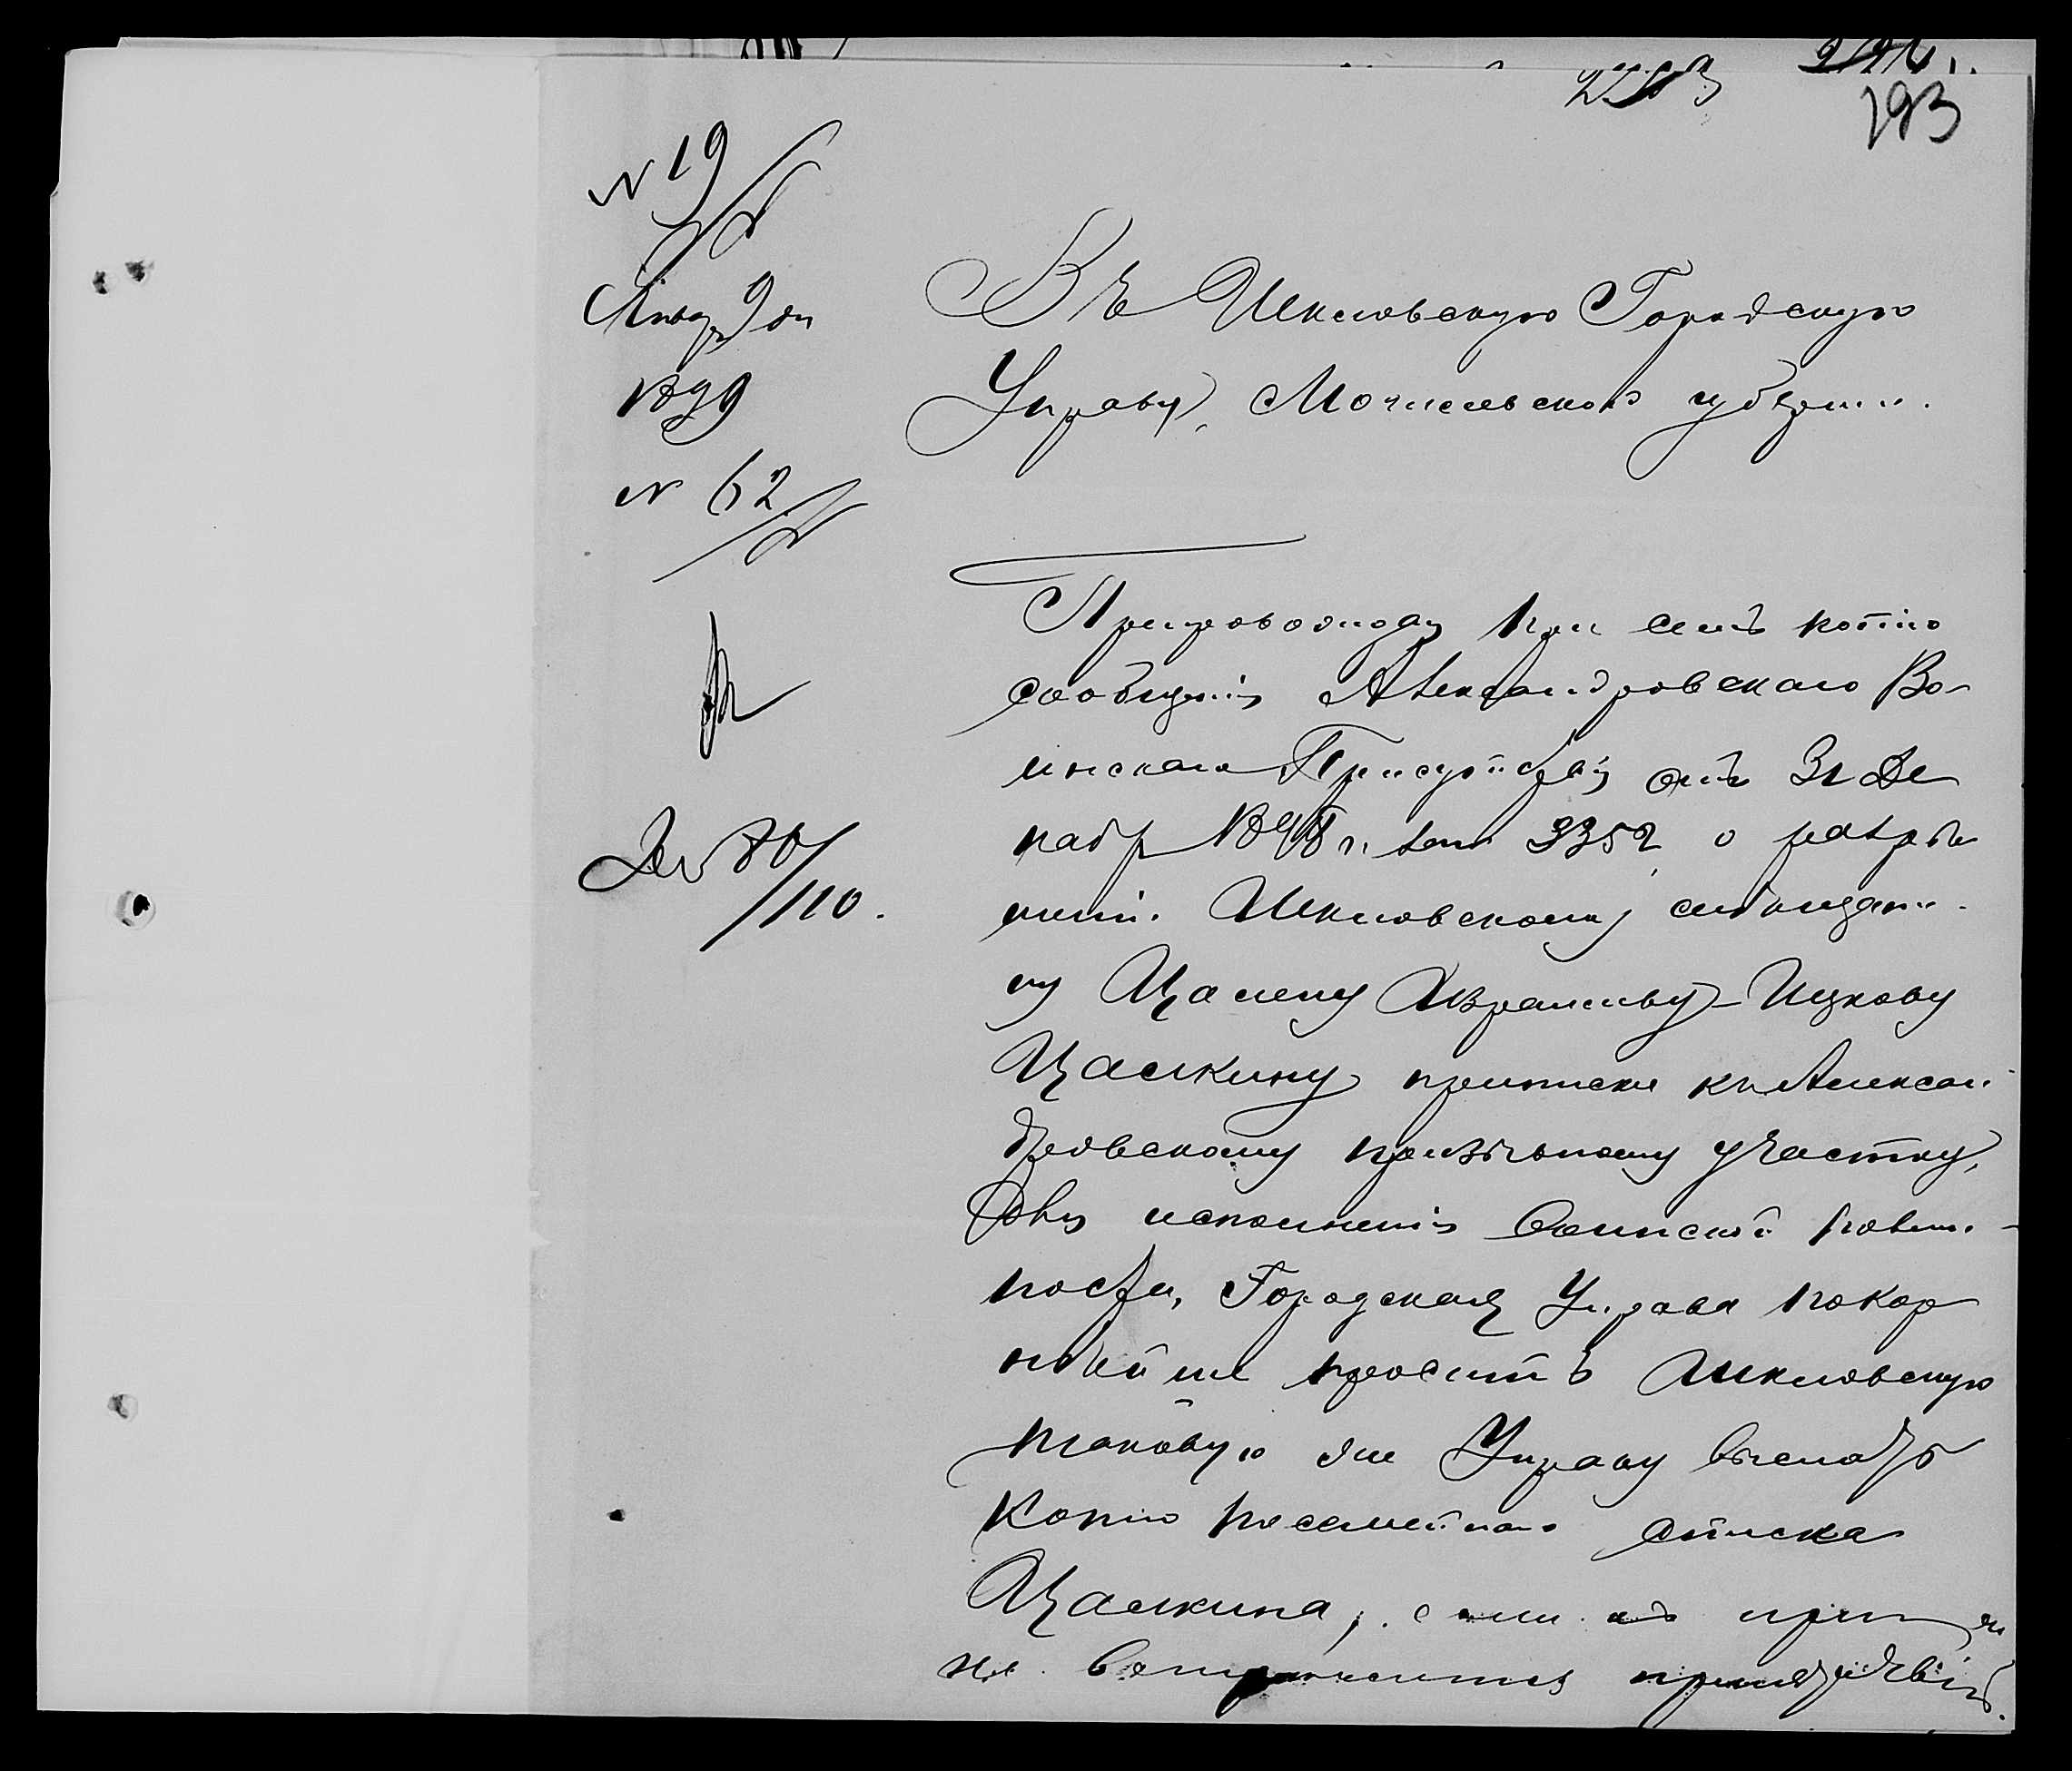 193
N 19
Январ 9 дн
1899
N 62
Въ Шкловскую Городскую
Управу, Могилевской губерніи.
Препровождая при семъ копію
сообщенія Александровскаго Во-
инскаго Присутствія отъ 31 Де
кабр 1898 г. за № 3352, о разрѣ
шеніи Шкловскому мѣщани-
ну Цалему Абрамову-Ицкову
Цалкину приписки къ Алексан
дровскому призывному участку,
для исполненія воинской повин-
ности, Городская Управа покор
нѣйше проситъ Шкловскую
таковую же Управу выслать
копію посемейнаго списка
Цалкина, если къ
не встрѣчается препятствій.
110.